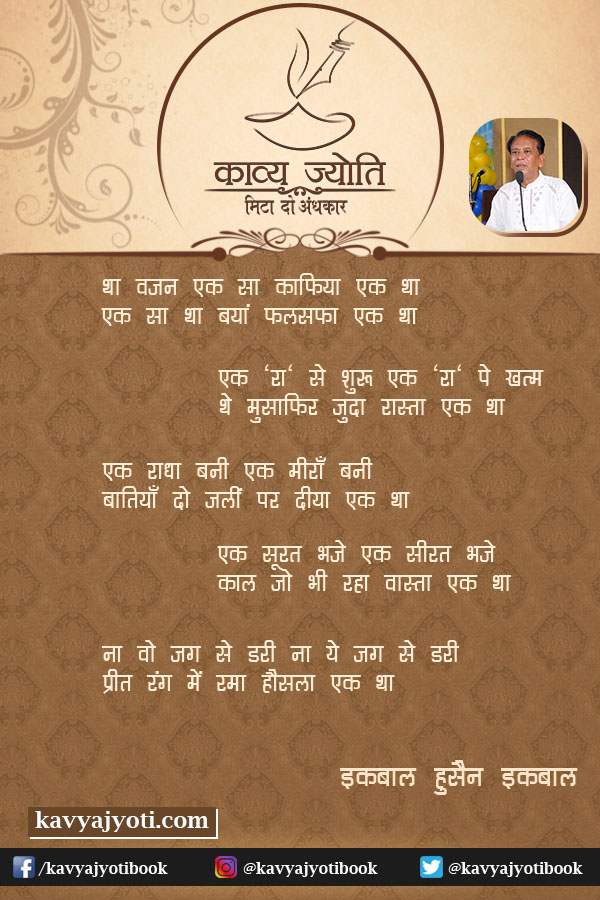 काव्य ज्योति
मिटा दो अंधकार
था वजन एक सा काफिया एक था
एक सा था बयां फलसफा एक था
एक ‘रा‘ से शुरू एक ‘रा‘ पे खत्म
थे मुसाफिर जुदा रास्ता एक था
एक राधा बनी एक मीराँ बनी
बातियाँ दो जलीं पर दीया एक था
एक सूरत भजे एक सीरत भजे
काल जो भी रहा वास्ता एक था
ना वो जग से डरी ना ये जग से डरी
प्रीत रंग में रमा हौसला एक था
इकबाल हुसैन इकबाल
kavyajyoti.com
/kavyajyotibook @kavyajyotibook @kavyajyotibook